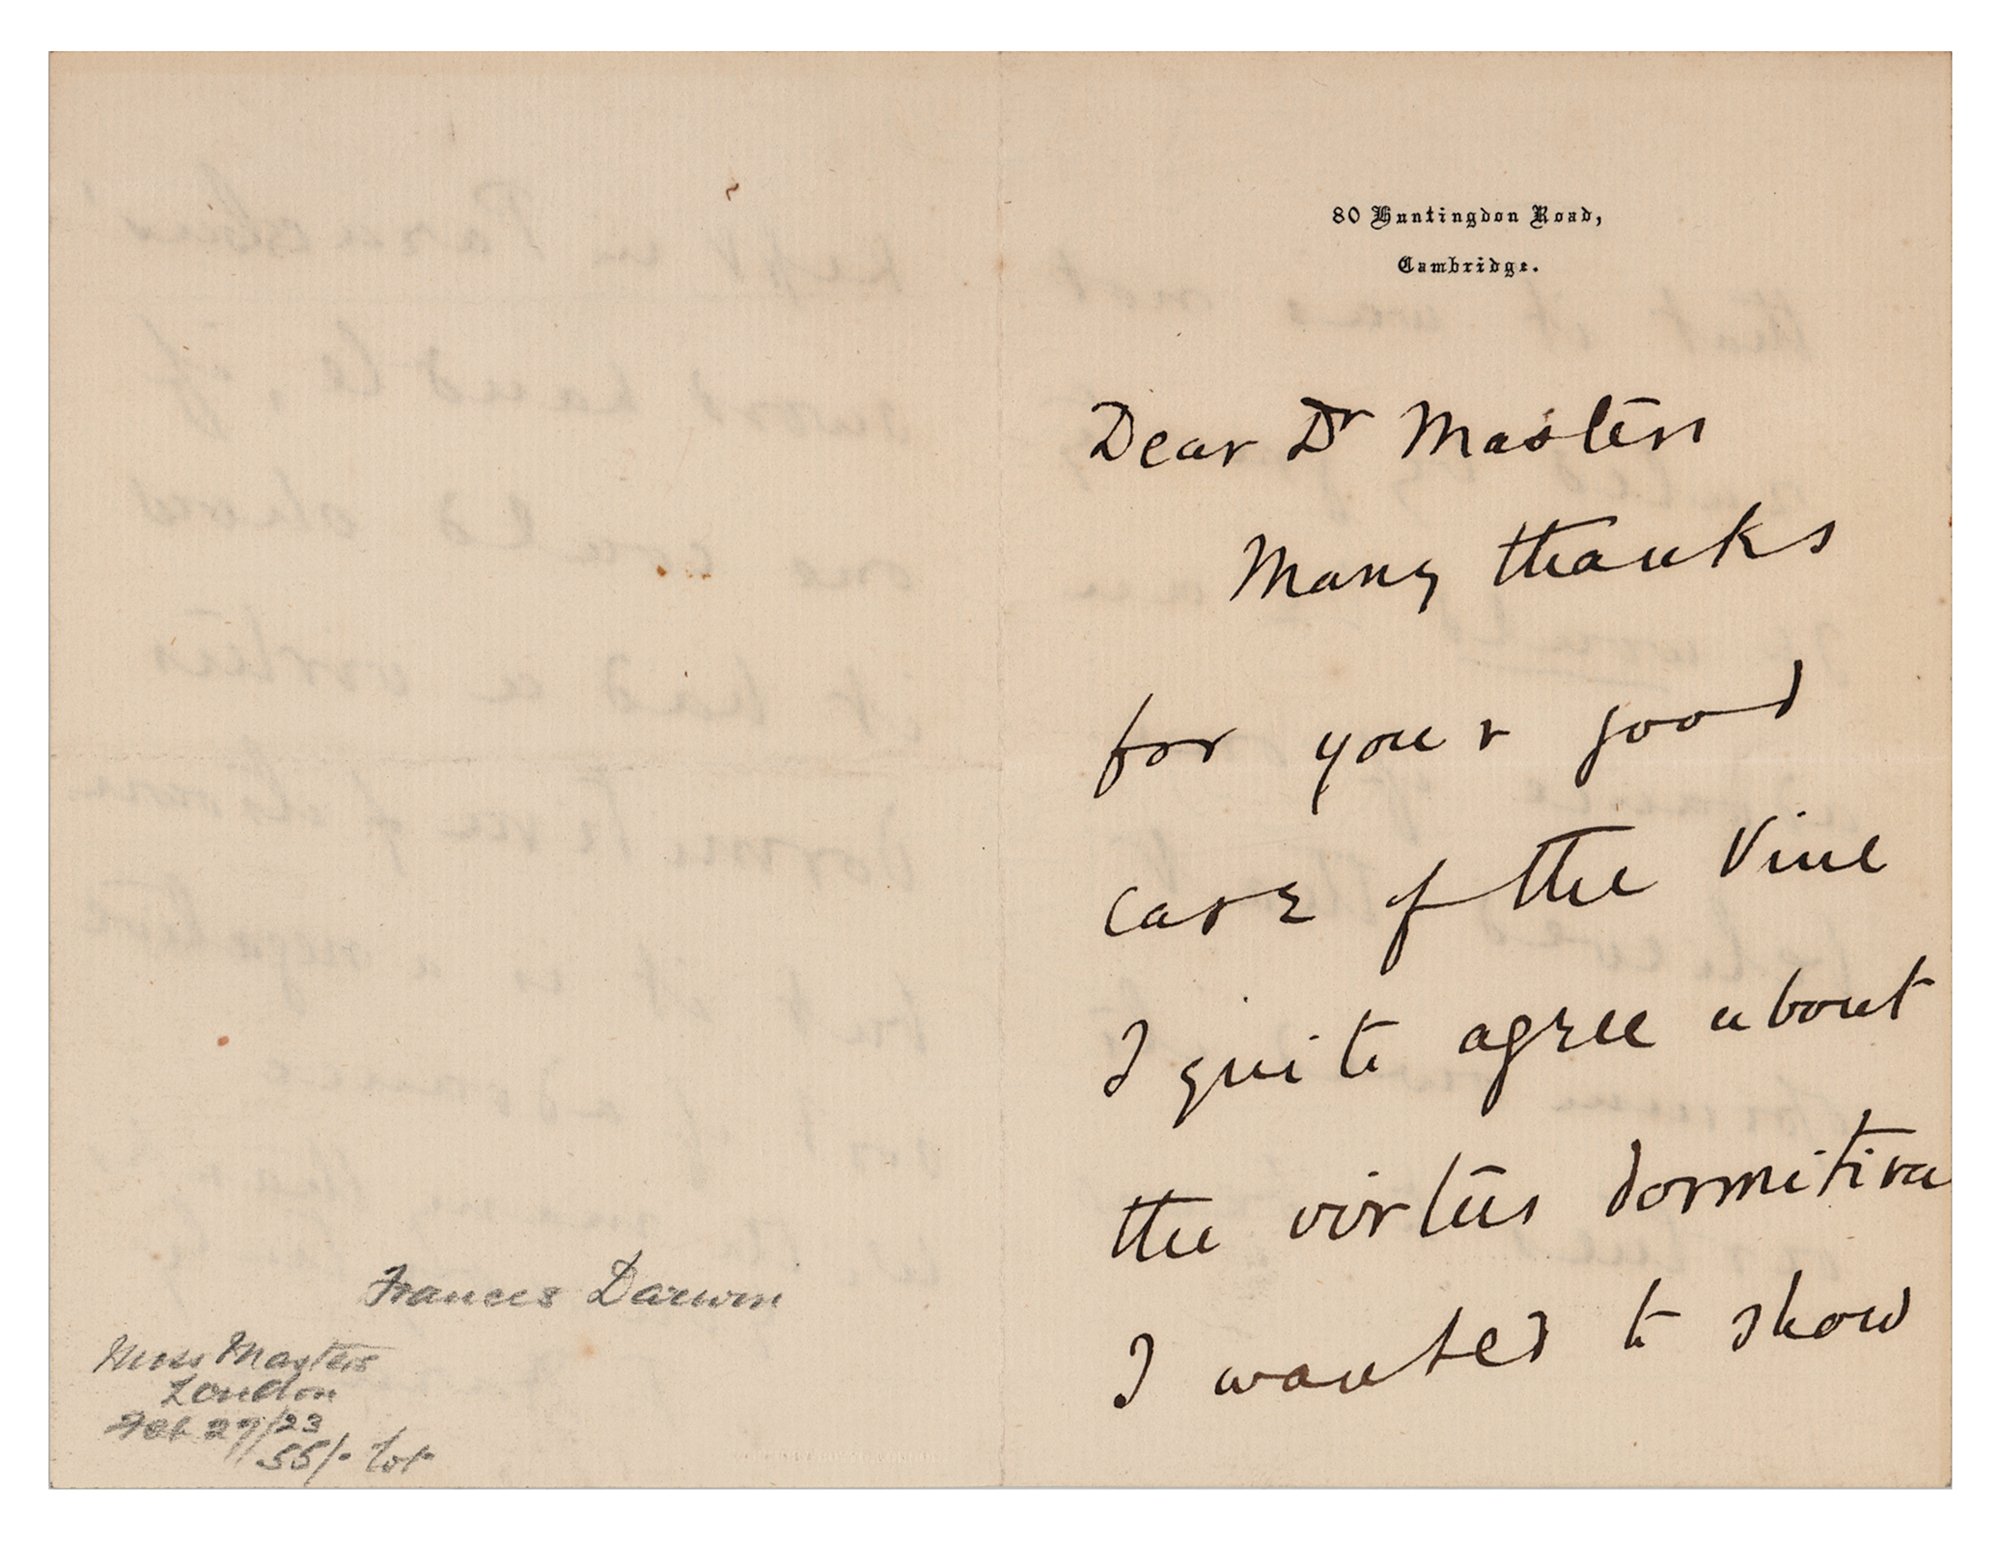 80 Huntingdon Road,
Cambridge.
Dear Dr Masters
Many thanks
for your good
case of the Vine
I quite agree about
the virtus dormitiva
I wanted to show
Frances Darwin
Miss Masters
London
Feb 27/23
55/- lot